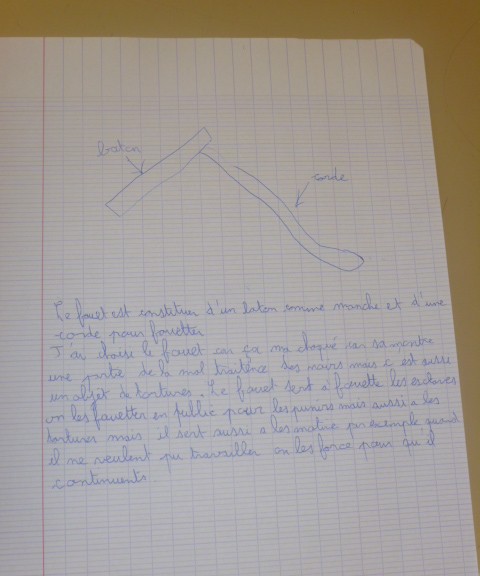 baton
corde
Le fouet est constituer d'un baton comme manche et d'une
corde pour fouetter
J'ai choisi le fouet car ça ma choqué car sa montre
une partie de la mal traitence des noirs mais c'est aussi
un objet de tortures. Le fouet sert a fouette les esclaves
on les fouetter en public pour les punirs mais aussi a les
tortures mais il sert aussi a les motive par exemple quand
il ne veulent pu travailler on les force pour qu'il
continuents.